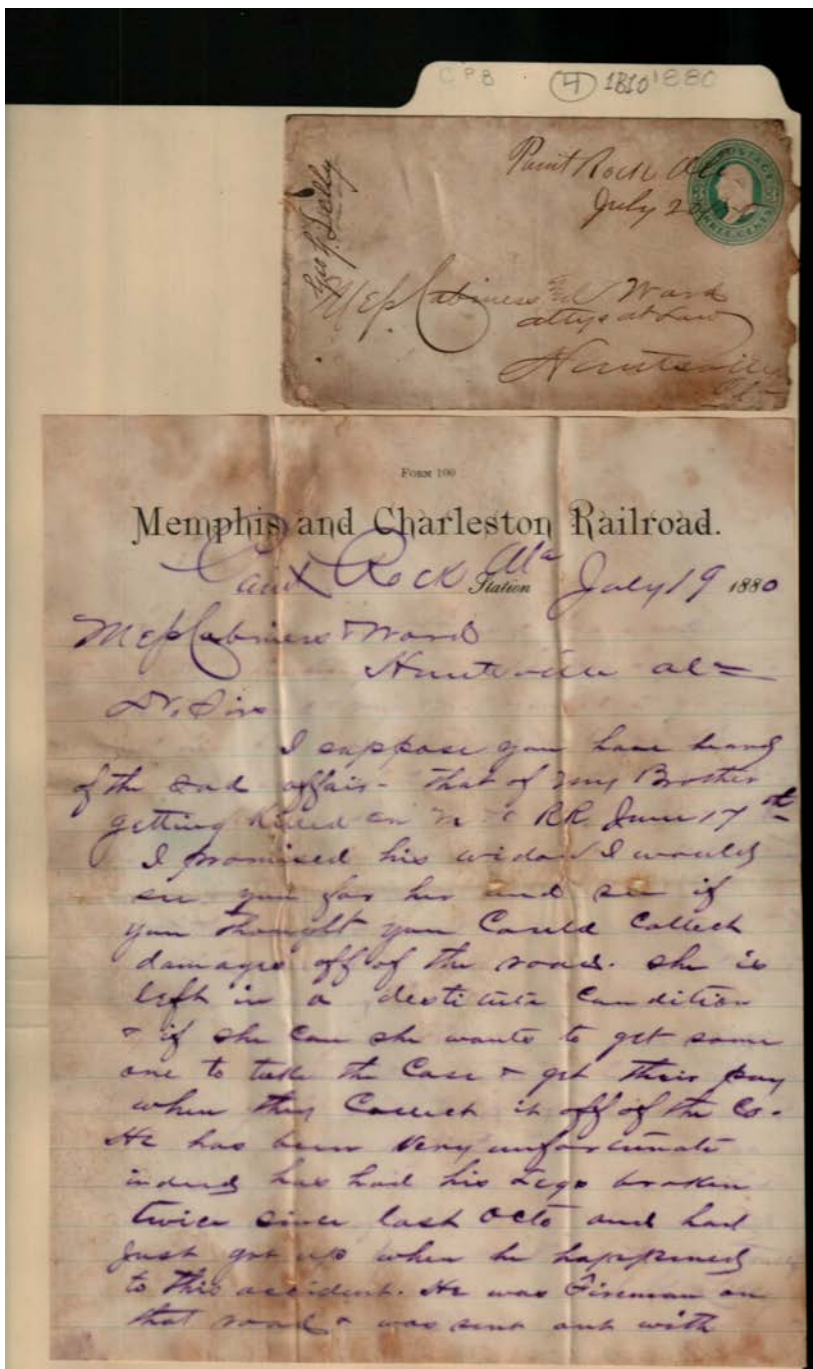 CPB 4 1810 1880
Paint Rock Ala
July 2
U.S. POSTAGE
THREE CENTS
Mess Cabiness & Ward
attys at Law
Huntsville
Ala
Form 100
Memphis and Charleston Railroad.
Paint Rock Ala Station July 19 1880
Mess Cabiness & Ward
Huntsville Ala
Dr. Sirs
I suppose you have heard
of the sad affair - that of my Brother
getting killed on RR. June 17th
I promised his widow I would
see you for her and see if
you thought you Could Collect
damages off of the road. she is
left in a destitute Condition
& if she can she wants to get some
one to take the Case & get their pay
when they Collect it off of the Co.
He has been very unfortunate
indeed has had his Legs broken
twice since last Octo and had
just got up when he happened
to this accident. He was Fireman on
that road & was sent out with